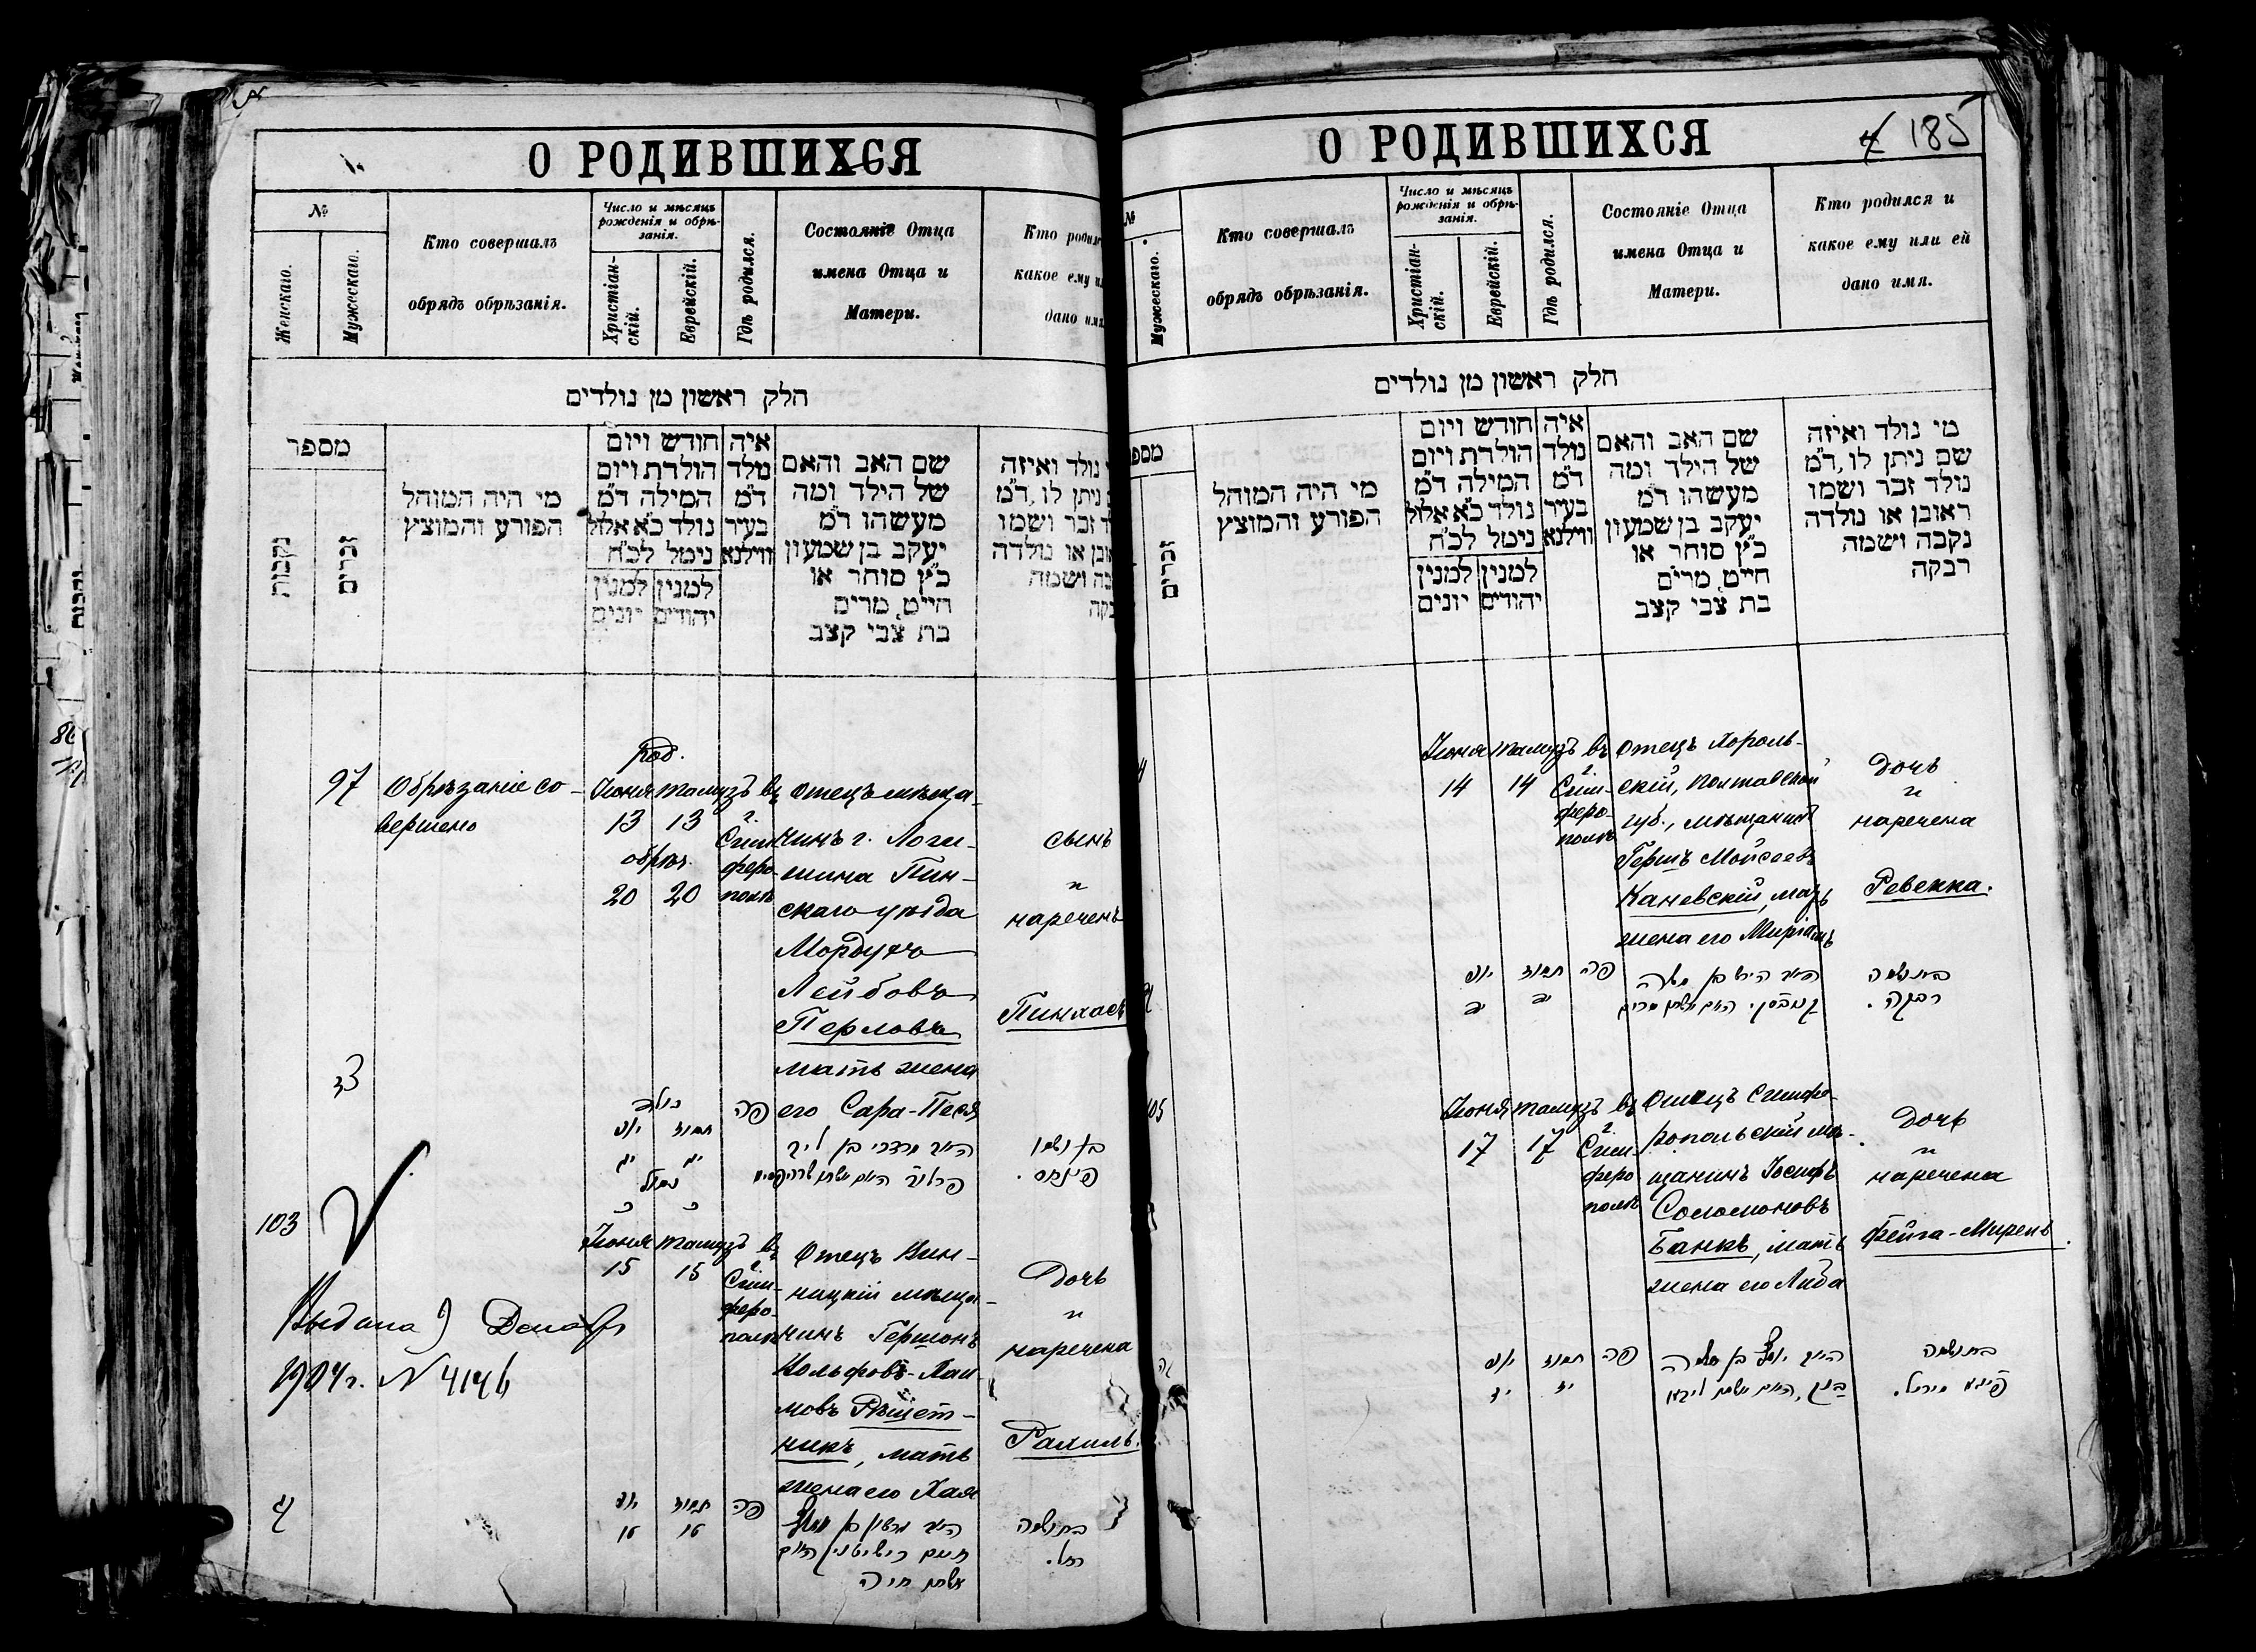 О РОДИВШИХСЯ
№
Женскаго.
Мужескаго.
Кто совершалъ
обрядъ обрѣзанія.
Число и мѣсяцъ
рожденія и обрѣ-
занія.
Христіан-
скій.
Еврейскій.
Гдѣ родился.
Состояніе Отца
имена Отца и
Матери.
Кто родил
какое ему ил
дано имя.
חלק ראשון מן נולדים
מספר
נקבות
זכרים
מי היה המוהל
הפורע והמוצץ
חודש ויום
הולדת ויום
המילה ד"מ
נולד כ"א אלול
נימל לכ"ח
למנין למנין
יהודים יונים
איה
נולד
ד"מ
בעיר
ווילנא
שם האב והאם
של הילד ומה
מעשהו ד"מ
יעקב בן שמעון
כ"ץ סוחר או
חייט, מרים
בת צבי קצב
נולד ואיזה
ניתן לו, ד"מ
ד זכר ושמו
ובן או נולדה
בה ושמה
בקה
97
Обрѣзаніе со-
вершено
род.
Іюня Тамузъ
13 13
обрѣз.
20 20
въ
г.
Сим
феро
полѣ
Отецъ мѣща-
нинъ г. Логи-
шина Пин-
скаго уѣзда
Мордухъ
Лейбовъ
Перловъ
мать жена
его Сара-Песя
сынъ
и
нареченъ
Пинхасъ
צז
נולד
יוני תמוז
יג יג
נימול
כ כ
פה
האב מרדכי בן ליב
פרלוב האם אשתו שרה פעסיא
בן ושמו
פינחס.
103
Іюня Тамузъ
15 15
въ
г.
Сим-
феро-
полѣ
Отецъ Вин-
ницкій мѣща-
нинъ Гершонъ
Вольфовъ-Хаи-
мовъ Рѣшет-
никъ, мать
жена его Хая
Дочь
и
наречена
Рахиль.
Выдана 9 Декабр
1904 г. № 4146
קג
יוני תמוז
טו טו
פה
האב גרשון בן וואלף
חיים רישעטניק האם
אשתו חיה
בת ושמה
רחל.
О РОДИВШИХСЯ
185
№
Мужескаго.
Кто совершалъ
обрядъ обрѣзанія.
Число и мѣсяцъ
рожденія и обрѣ-
занія.
Христіан-
скій.
Еврейскій.
Гдѣ родился.
Состояніе Отца
имена Отца и
Матери.
Кто родился и
какое ему или ей
дано имя.
חלק ראשון מן נולדים
מספ
זכרים
מי היה המוהל
הפורע והמוצץ
חודש ויום
הולדת ויום
המילה ד"מ
נולד כ"א אלול
נימל לכ"ח
למנין למנין
יהודים יונים
איה
נולד
ד"מ
בעיר
ווילנא
שם האב והאם
של הילד ומה
מעשהו ד"מ
יעקב בן שמעון
כ"ץ סוחר או
חייט, מרים
בת צבי קצב
מי נולד ואיזה
שם ניתן לו, ד"מ
נולד זכר ושמו
ראובן או נולדה
נקבה ושמה
רבקה
4
Іюня Тамузъ
14 14
въ
г.
Сим-
феро-
полѣ
Отецъ Хороль-
скій, Полтавской
губ., мѣщанинъ
Гершъ Мойсеевъ
Каневскій, мать
жена его Миріамъ
Дочь
и
наречена
Ревекка.
יוני תמוז
יד יד
פה
האב הירש בן משה
קנבסקי, האם אשתו מרים
בת ושמה
רבקה.
105
Іюня Тамузъ
17 17
въ
г.
Сим-
феро
полѣ
Отецъ Симфе-
ропольскій мѣ-
щанинъ Іосифъ
Соломоновъ
Банкъ, мать
жена его Либа
Дочь
и
наречена
Фейга-Мирель.
יוני תמוז
יז יז
פה
האב יוסף בן שלמה
בנק, האם אשתו ליבא
בת ושמה
פייגא מירל.